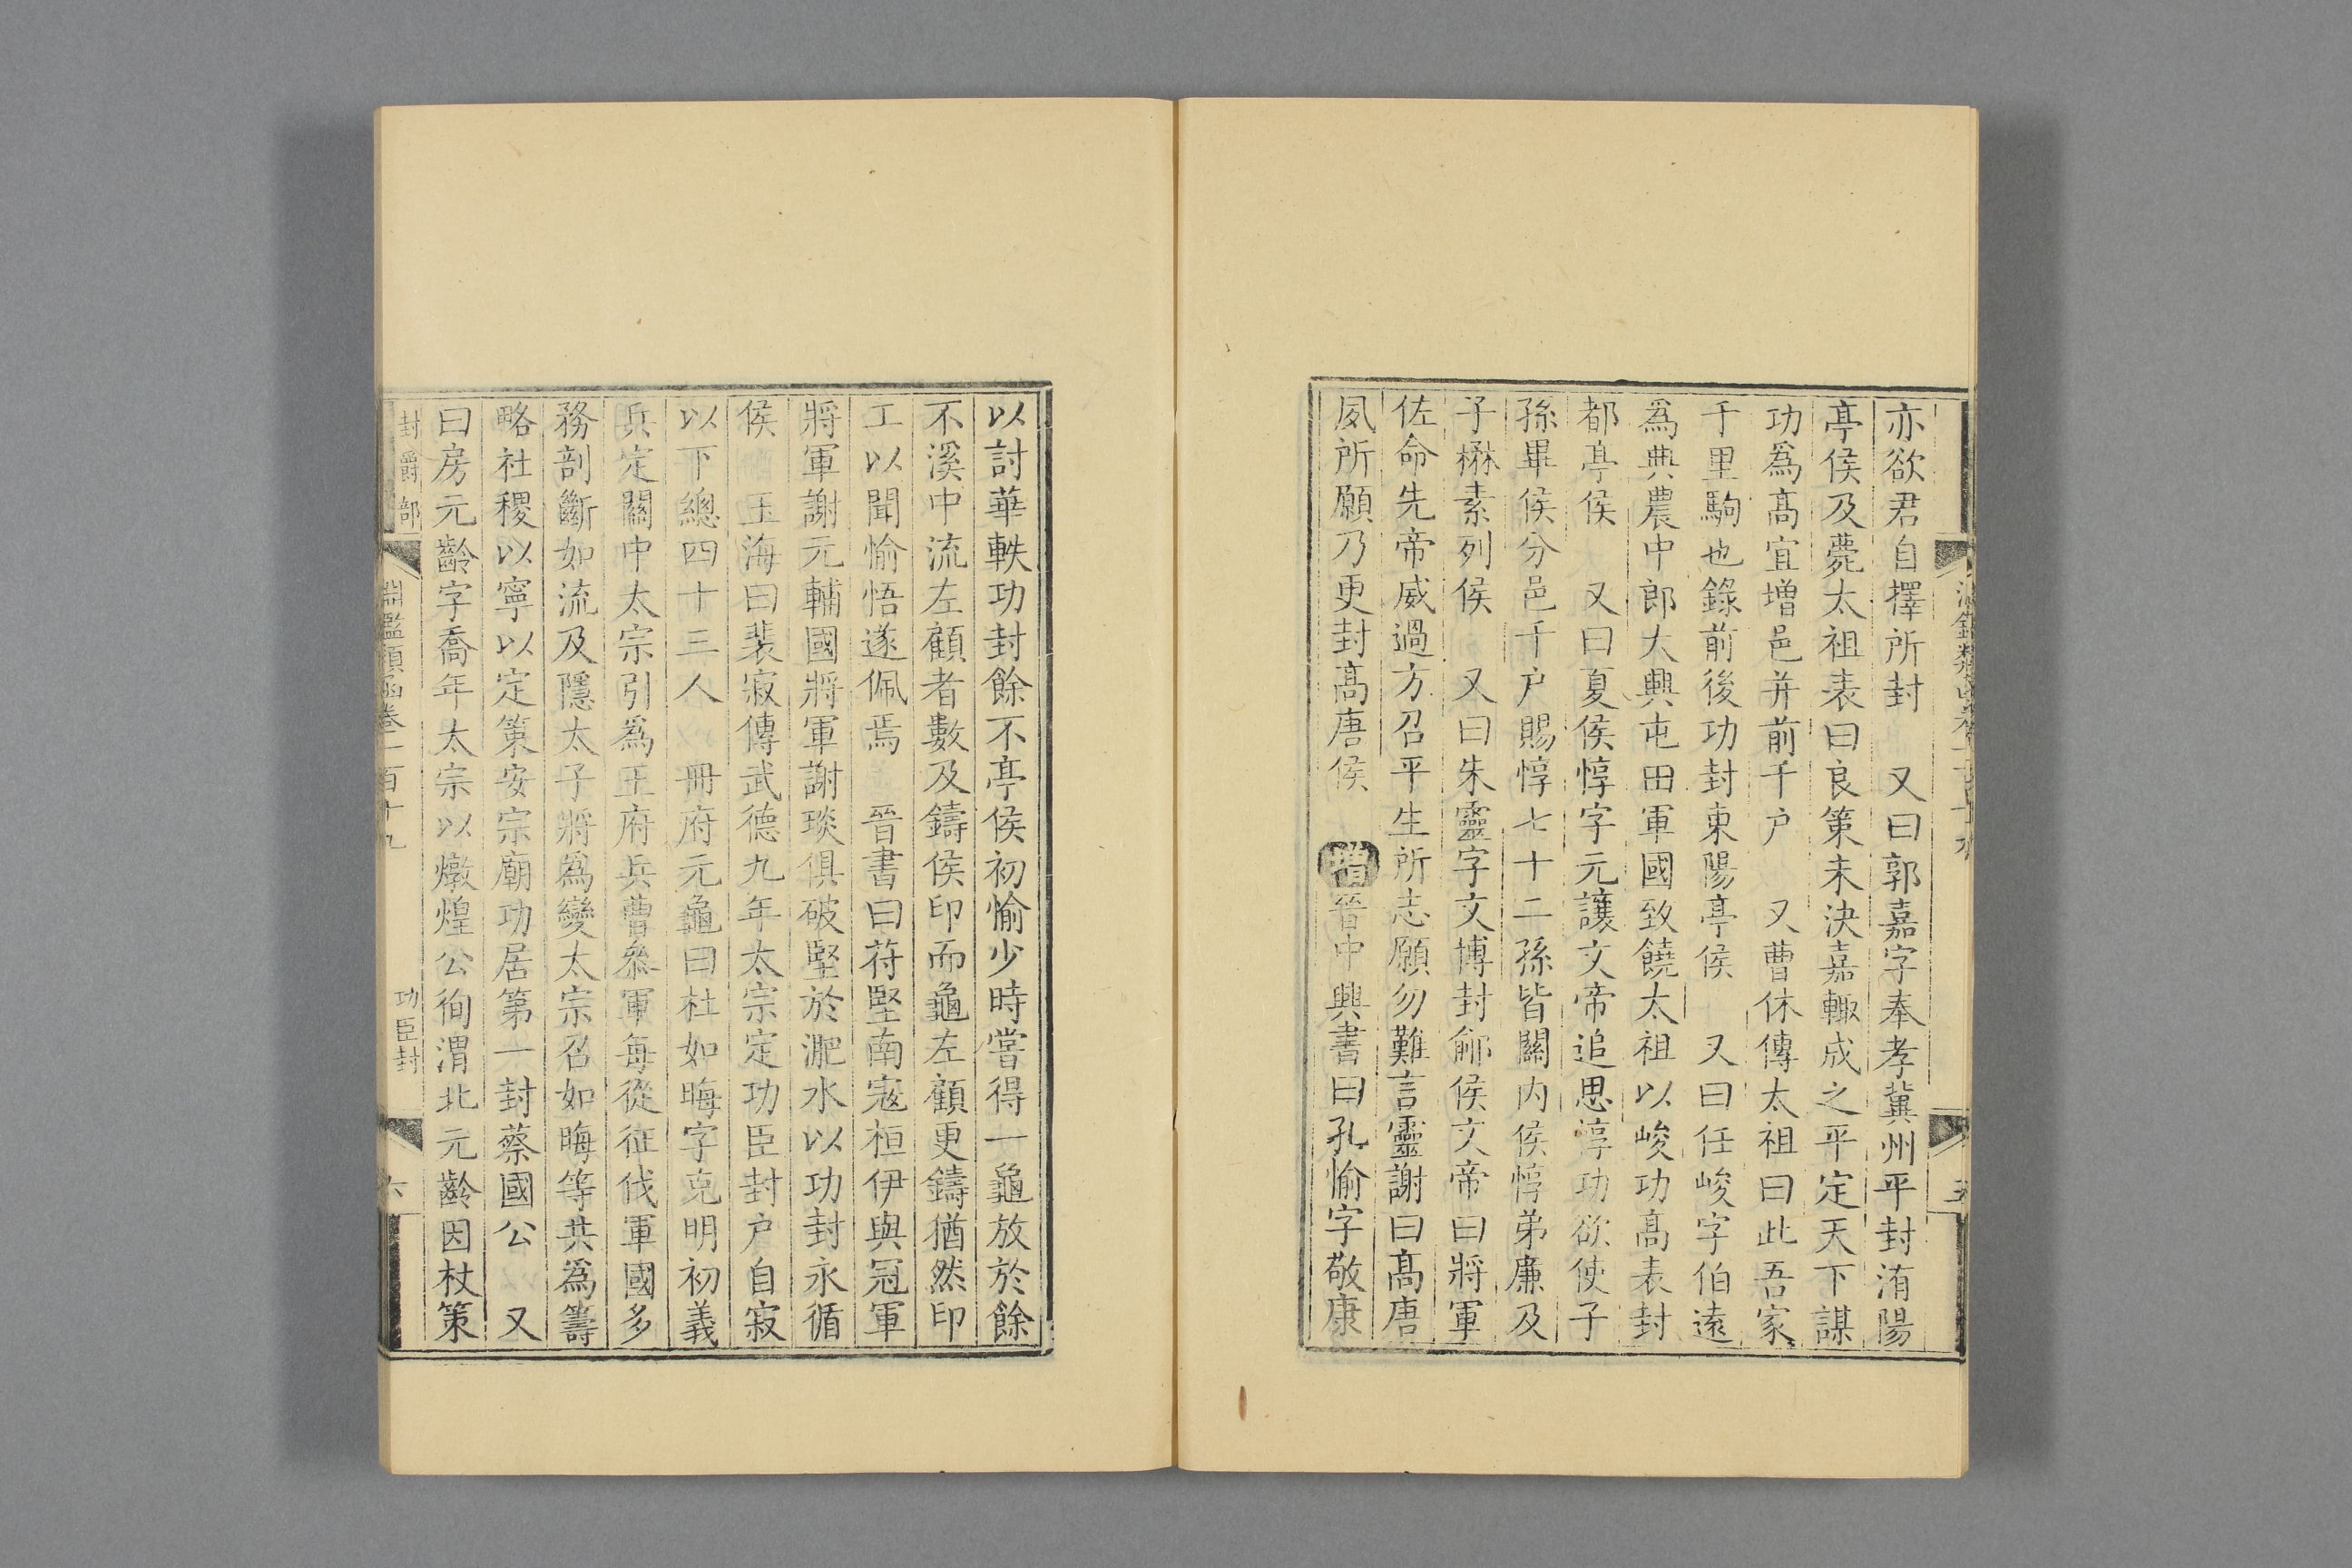 亦欲君自擇所封　又曰郭嘉字奉孝冀州平封洧陽
亭侯及薨太祖表曰良策未決嘉輙成之平定天下謀
功爲髙宜增邑并前千户　又曹休傳太祖曰此吾家
千里駒也錄前後功封東陽亭侯　又曰任峻字伯遠
爲典農中郎大興屯田軍國致饒太祖以峻功髙表封
都亭侯　又曰夏侯惇字元讓文帝追思惇功欲使子
孫畢侯分邑千户賜惇七十二孫皆關内侯惇弟廉及
子楙素列侯　又曰朱靈字文博封鄃侯文帝曰將軍
佐命先帝威過方召平生所志願勿難言靈謝曰髙唐
夙所願乃更封髙唐侯　增晉中興書曰孔愉字敬康
以討華軼功封餘不亭侯初愉少時嘗得一龜放於餘
不溪中流左顧者數及鑄侯印而龜左顧更鑄猶然印
工以聞愉悟遂佩焉　晉書曰苻堅南寇桓伊與冠軍
將軍謝元輔國將軍謝琰俱破堅於淝水以功封永循
侯　玉海曰裴寂傳武德九年太宗定功臣封户自寂
以下總四十三人　冊府元龜曰杜如晦字克明初義
兵定關中太宗引爲王府兵曹叅軍每從征伐軍國多
務剖斷如流及隱太子將爲變太宗召如晦等共爲籌
略社稷以寧以定策安宗廟功居第一封蔡國公　又
曰房元齡字喬年太宗以燉煌公徇渭北元齡因杖策
封爵部
淵鑑類函卷一百十九
功臣封
六